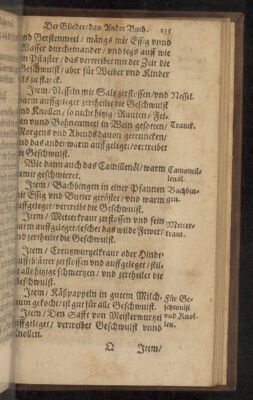 Der Glieder/ das Ander Buch. 235
und Gerstenmeel / mängs mit Essig vnnd
Wasser durcheinander / vnd legs auff wie
ein Pflaster / das vertreibet mit der Zeit die
Geschwulst / aber für Weiber vnd Kinder
ists zu starck.
Item / Nesseln mit Saltz zerstossen / vnd Nessel.
warm auffgeleget zertheilet die Geschwulst
vnd Knollen / so nicht hitzig / Rauten / Fei-
gen vnnd Bohnenmeel in Wein gesotten / Tranck.
Morgens vnd Abends davon getruncken /
vnd das ander warm auffgeleget / vertreibet
die Geschwulst.
Wie dann auch das Camillenöl / warm Camomill-
damit geschmieret. lenöl.
Item / Bachbungen in einer Pfannen Bachbun-
mit Essig vnd Butter geröstet / vnd warm gen.
auffgeleget / vertreibet die Geschwulst.
Item / Metterkraut zerstossen vnd sein Metter-
warm auffgeleget / leschet das wilde Fewer / kraut.
vnd zertheilet die Geschwulst.
Item / Creutzwurtzelkraut oder Hinde-
laufftblätter zerstossen vnd auffgeleget / stil-
let alle hitzige schmertzen / vnd zertheilet die
Geschwulst.
Item / Käßpappeln in gutem Milch- Für Ge-
raum gekocht / ist gut für alle Geschwulst. schwulst
Item / Den Safft von Meisterwurtzel vnd Knol-
auffgeleget / vertreibet Geschwulst vnnd len.
Knollen.
Q Item/